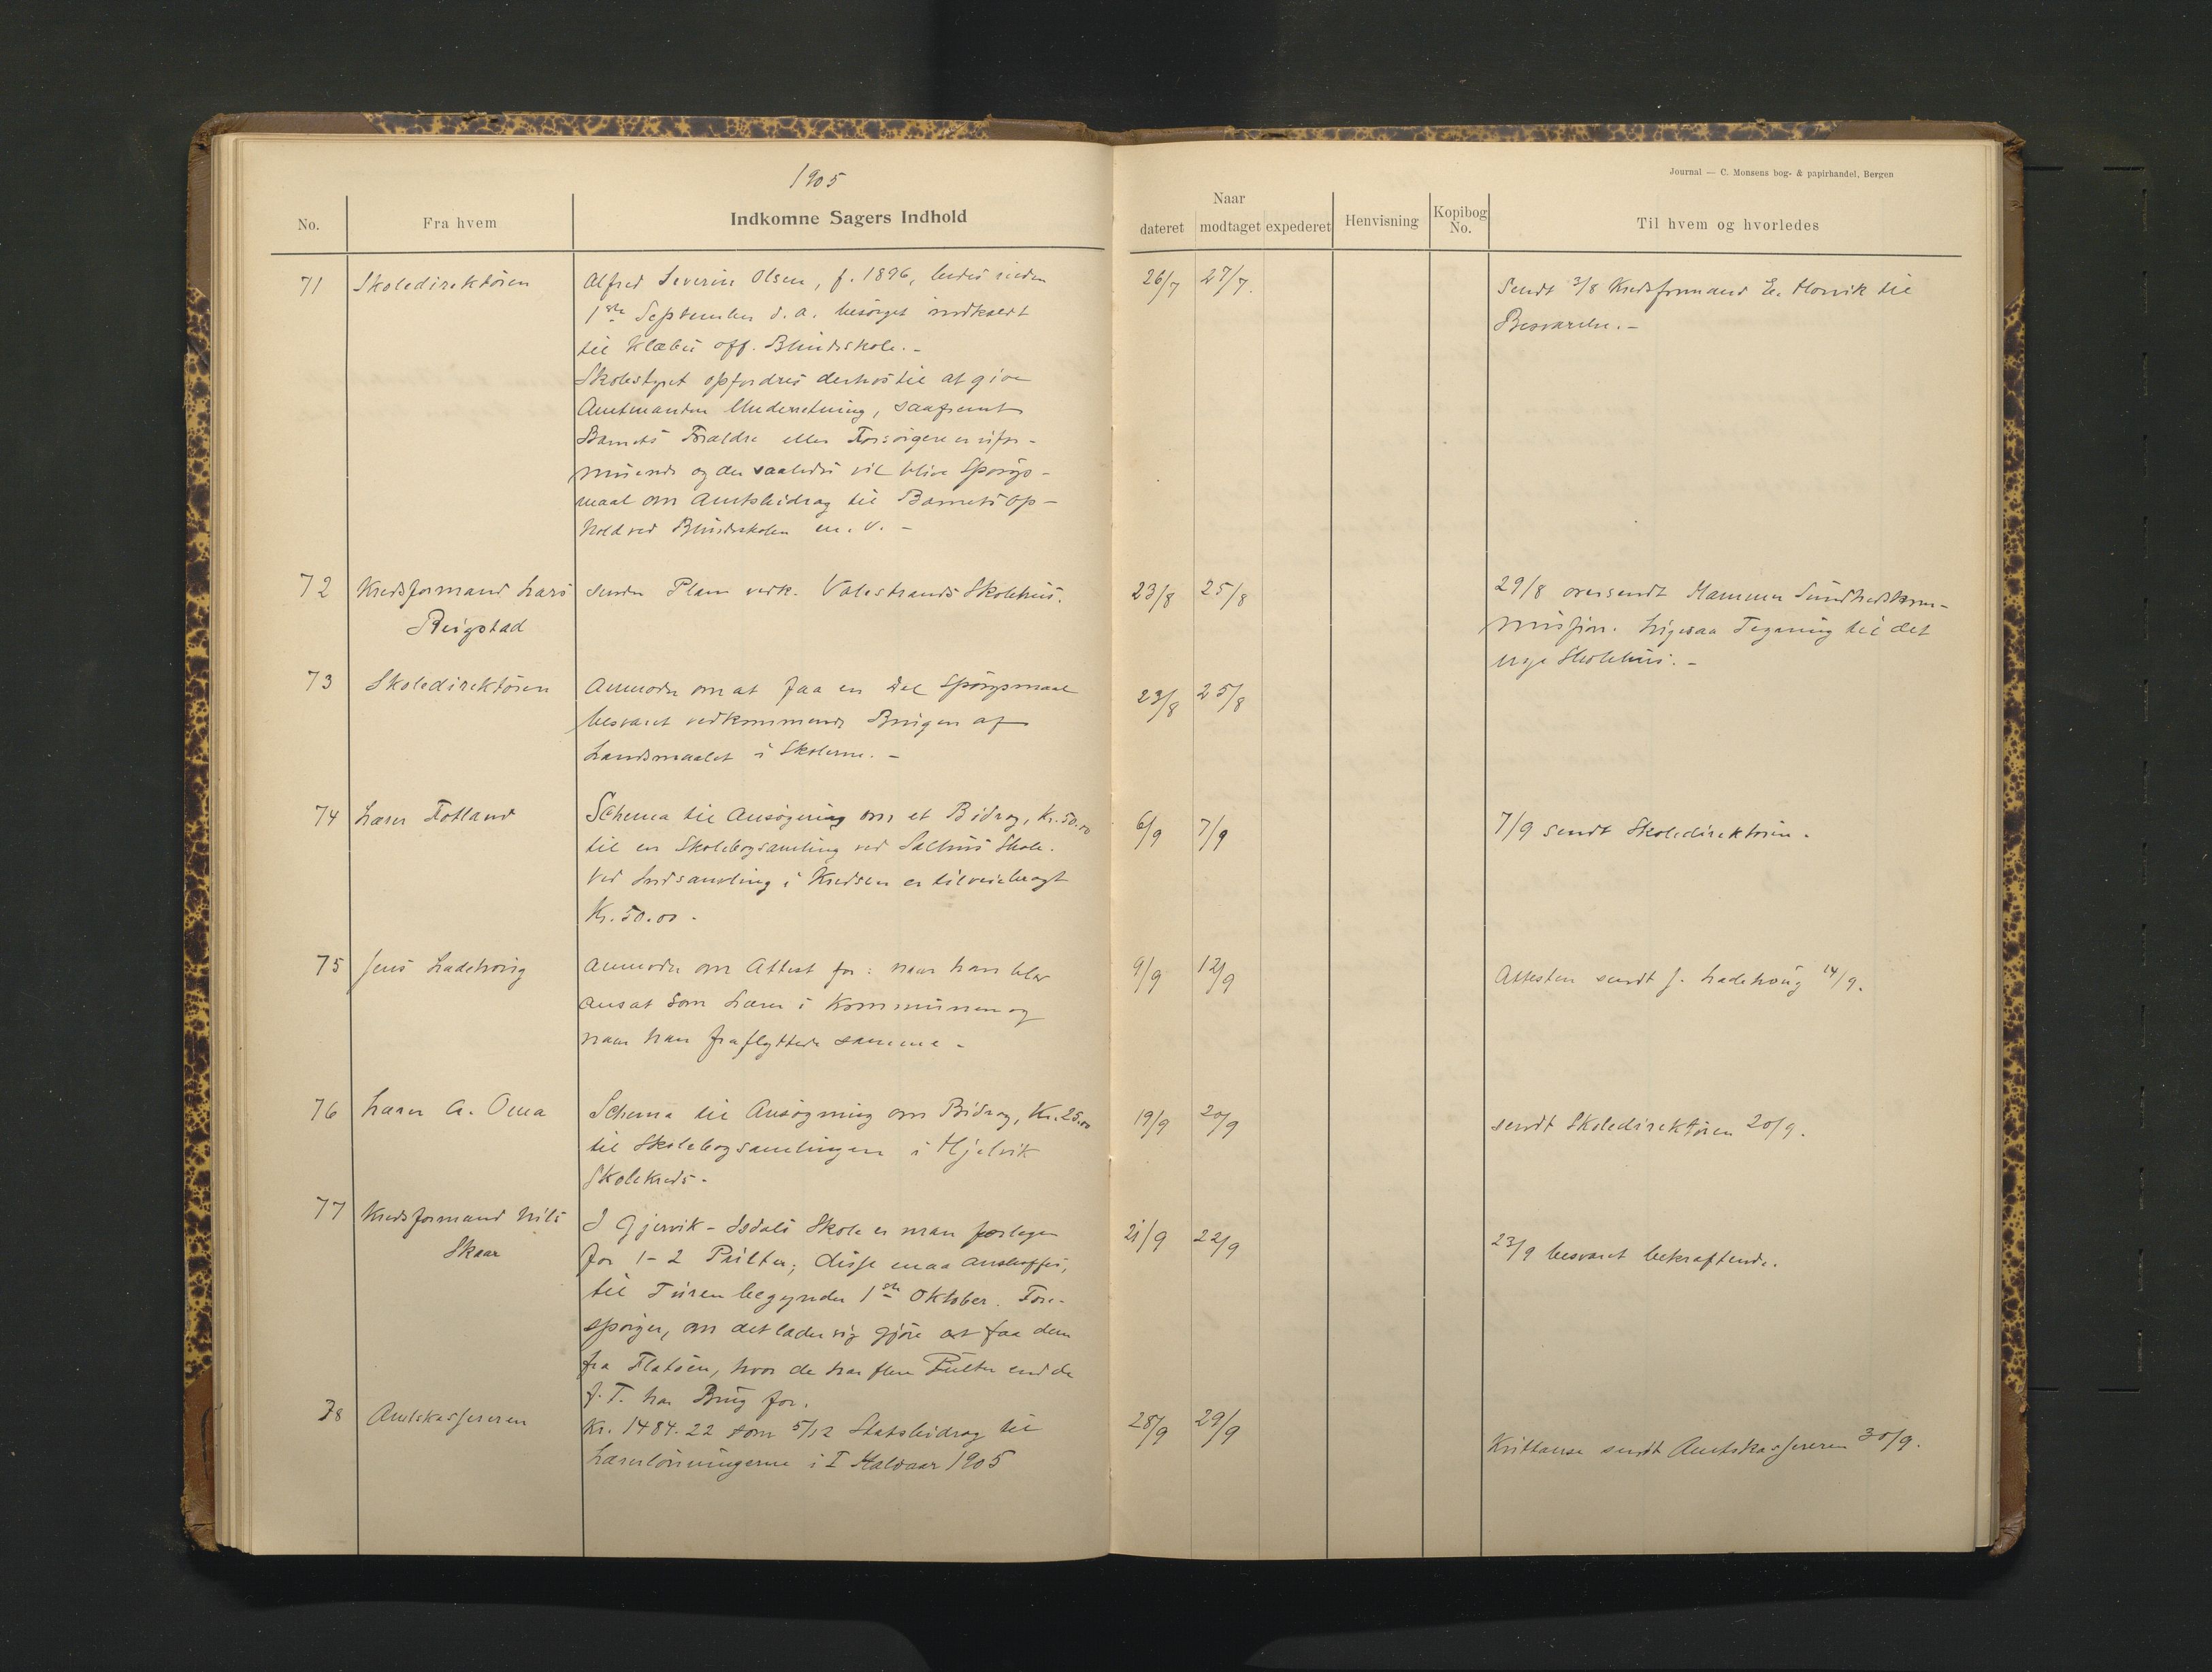 1905
Journal — C. Monsens bog- & papirhandel, Bergen
No.
Fra hvem
Indkomne Sagers Indhold
Naar
dateret
modtaget
expederet
Henvisning
Kopibog
No.
Til hvem og hvorledes
71
Skoledirektøren
Alfred Severin Olsen, f. 1896, bedes inden
1ste September d. a. besørget indkaldt
til Klæbu off. Blindeskole. –
Skolestyret opfordres derhos til at give
Amtmanden Underretning, saafremt
Barnets Forældre eller Forsørgere er ufor-
muende og der saaledes vil blive Spørgs-
maal om Amtsbidrag til Barnets Op-
hold ved Blindeskolen m. v. –
26/7
27/7.
Sendt 3/8 Kredsformand E. Morvik til
Besvarelse. –
72
Kredsformand Lars
Reigstad
sender Plan vedk. Valestrands Skolehus.
23/8
25/8
29/8 oversendt Hammer Sundhedskom-
mission. Ligesaa Tegning til det
nye Skolehus. –
73
Skoledirektøren
Anmoder om at faa en Del Spørgsmaal
besvaret vedkommende Brugen af
Landsmaalet i Skolerne. –
23/8
25/8
74
Lærer Fotland
Schema til Ansøgning om et Bidrag, Kr. 50.00
til en Skolebogsamling ved Salhus Skole.
Ved Indsamling i Kredsen er tilveiebragt
Kr. 50.00 -
6/9
7/9
7/9 sendt Skoledirektøren.
75
Jens Ladehoug
Anmoder om Attest for: naar han blev
ansat som Lærer i Kommunen og
naar han fraflyttede samme –
9/9
12/9
Attesten sendt J. Ladehoug 14/9.
76
Lærer A. Oma
Schema til Ansøgning om Bidrag, Kr. 25.00
til Skolebogsamlingen i Hjelvik
Skolekreds -
19/9
20/9
sendt Skoledirektøren 20/9.
77
Kredsformand Nils
Skaar
I Gjervik - Isdals Skole er man forlegen
for 1-2 Pulter; disse maa anskaffes,
til Turen begynder 1ste Oktober. Fore-
spørger, om det lader sig gjøre at faa dem
fra Flatøen, hvor de har flere Pulter end de
f. T. har Brug for.
21/9
22/9
23/9 besvaret bekræftende.
78
Amtskassereren
Kr. 1484.22 som 5/12 Statsbidrag til
Lærerlønningerne i I Halvaar 1905
28/9
29/9
Kvittanse sendt Amtskassereren 30/9.